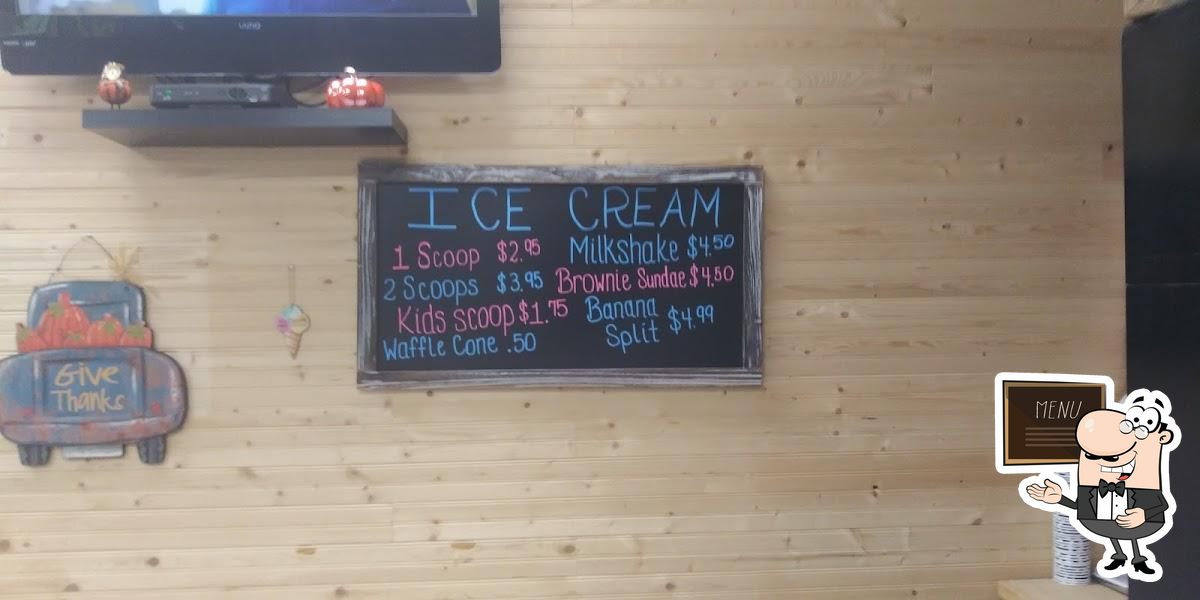 VIZIO
ICE CREAM
1 Scoop $2.95
2 Scoops $3.95
Kids scoop $1.75
Waffle Cone .50
Milkshake $4.50
Brownie Sundae $4.50
Banana
Split $4.99
Give
Thanks
MENU